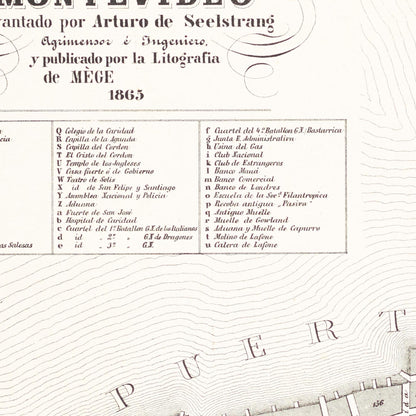 MONTEVIDEO
vantado por Arturo de Seelstrang
Agrimensor é Ingeniero,
y publicado por la Litografia
de MÈGE
1865
Q Colegio de la Caridad
R Capilla de la Aguada
S Capilla del Cordon
T El Cristo del Cordon
U Templo de los Ingleses
V Casa fuerte ó de Gobierno
W Teatro de Solis
X id de San Felipe y Santiago
Y Asamblea Nacional y Policia
Z Aduana
a Fuerte de San José
b Hospital de Caridad
c Cuartel del 1º Batallon G.N. de Italianos
d id „ 2º „ G.N. de Dragones
e id „ 3º „ G.N.
as Salesas
f Cuartel del 4º Batallon G.N. Bastarrica
g Junta E. Administrativa
h Usina del Gas
i Club Nacional
k Club de Estrangeros
l Banco Mauá
m Banco Comercial
n Banco de Londres
o Escuela de la Socd Filantropica
p Recoba antigua
q Antiguo Muelle
r Muelle de Gowland
s Aduana y Muelle de Capurro
t Molino de Lafone
u Calera de Lafone
PUERT
156